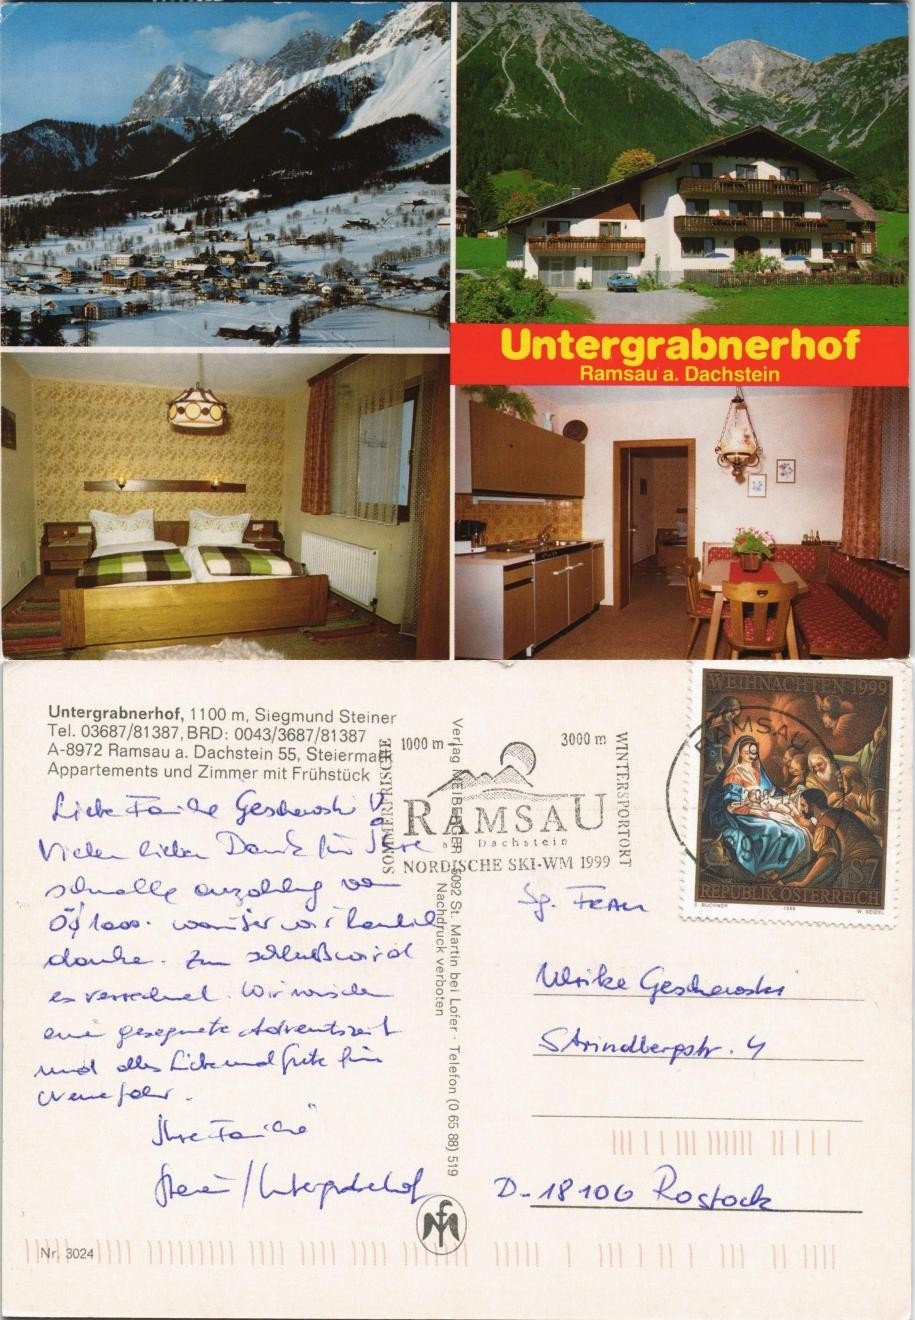 Untergrabnerhof
Ramsau a. Dachstein
Untergrabnerhof, 1100 m, Siegmund Steiner
Tel. 03687/81387, BRD: 0043/3687/81387
A-8972 Ramsau a. Dachstein 55, Steiermark
Appartements und Zimmer mit Frühstück
Liebe Familie Geschewski
Vielen lieben Dank für Ihre
schnelle anzahlung von
ÖS 1000.- wir
danke. Zum schluß wird
es verrechnet. Wir wünschen
eine gesegnete Adventszeit
und alles Liebe und Gute fürs
neue Jahr.
Ihre Familie
Steiner/Untergrabnerhof
Nr. 3024
Verlag MEIBERGER 5092 St. Martin bei Lofer · Telefon (0 65 88) 519
Nachdruck verboten
SOMMERFRISCHE
1000 m
3000 m
WINTERSPORTORT
RAMSAU
am Dachstein
NORDISCHE SKI-WM 1999
WEIHNACHTEN 1999
RAMSAU
S 7
REPUBLIK ÖSTERREICH
1999
W. SEIDEL
Sg. Frau
Ulrike Geschewski
Strindbergstr. 4
D-18106 Rostock